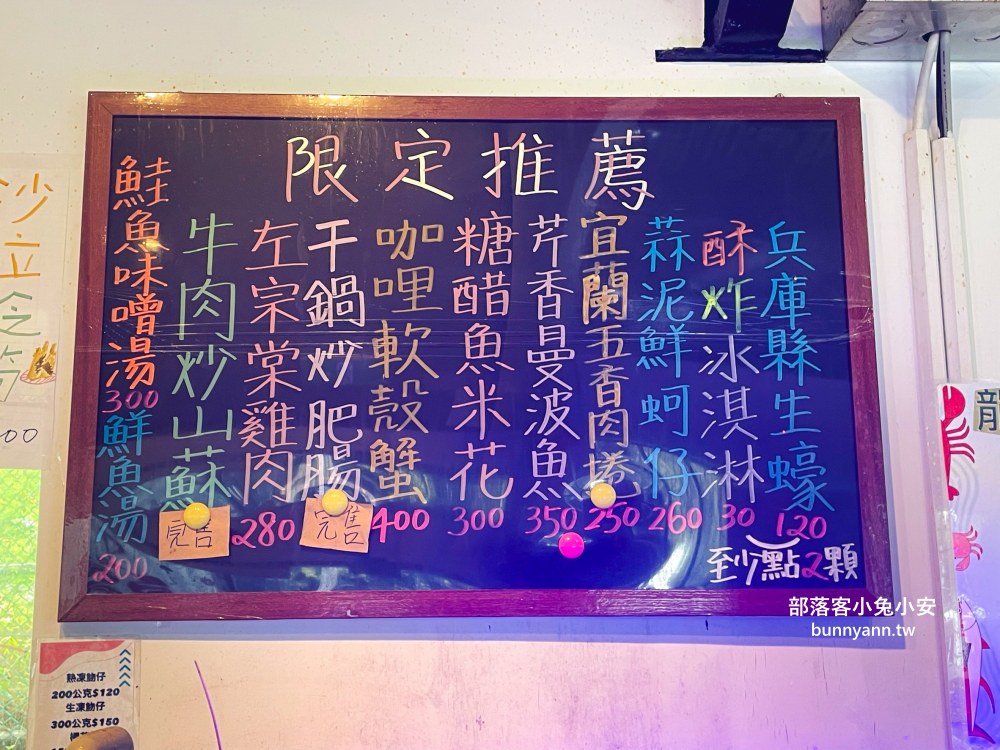 限定推薦
兵庫縣生蠔
120
至少點2顆
酥炸冰淇淋
30
蒜泥鮮蚵仔
260
宜蘭五香肉捲
250
芹香曼波魚
350
糖醋魚米花
300
咖哩軟殼蟹
400
干鍋炒肥腸
完售
左宗棠雞肉
280
牛肉炒山蘇
完售
鮭魚味噌湯
300
鮮魚湯
200
部落客小兔小安
bunnyann.tw
熟凍魩仔
200公克$120
生凍魩仔
300公克$150
龍